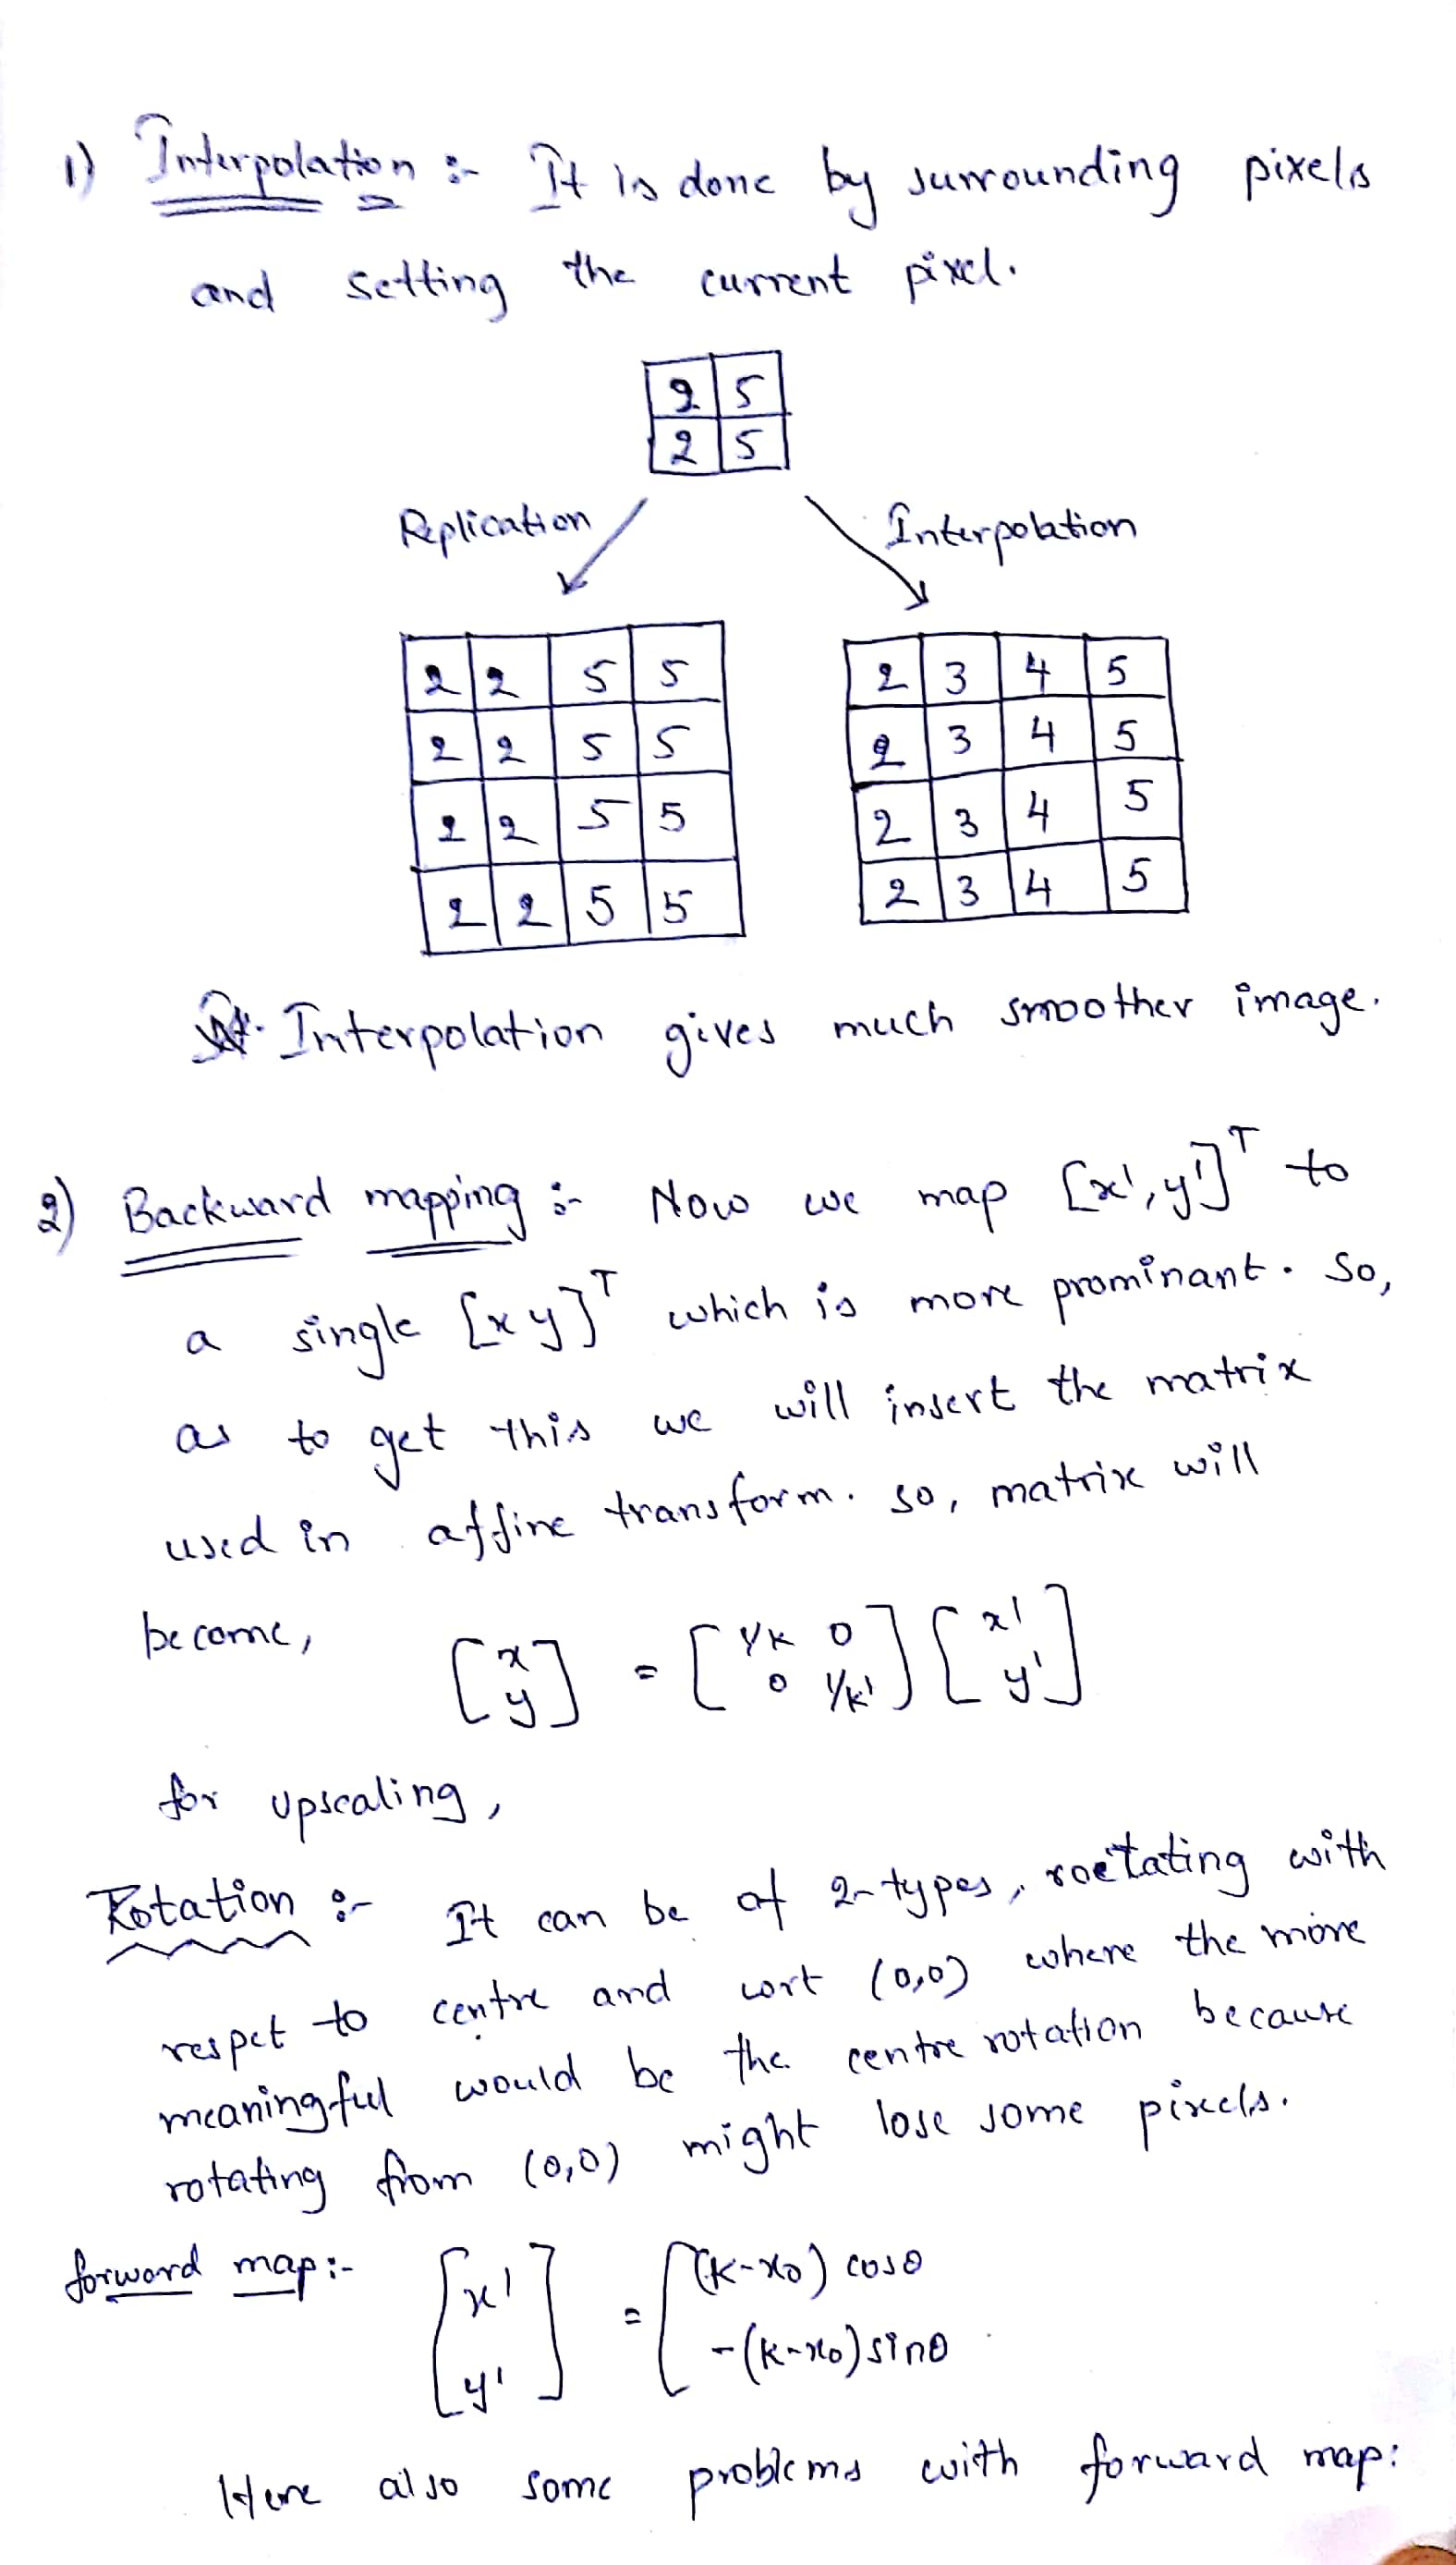 1) Interpolation :- It is done by surrounding pixels
and setting the current pixel.
2 5
2 5
Replication Interpolation
2 2 5 5
2 2 5 5
2 2 5 5
2 2 5 5
2 3 4 5
2 3 4 5
2 3 4 5
2 3 4 5
Interpolation gives much smoother image.
2) Backward mapping :- Now we map [x', y']ᵀ to
a single [x y]ᵀ which is more prominant. So,
as to get this we will insert the matrix
used in affine transform. so, matrix will
become, [x y] = [1/k 0 0 1/k'] [x' y']
for upscaling,
Rotation :- It can be of 2-types, roetating with
respct to centre and wort (0,0) where the more
meaningful would be the centre rotation because
rotating from (0,0) might lose some pixels.
forward map:- [x' y'] = [(k-x₀) cosθ -(k-x₀) sinθ
Here also some problems with forward map: